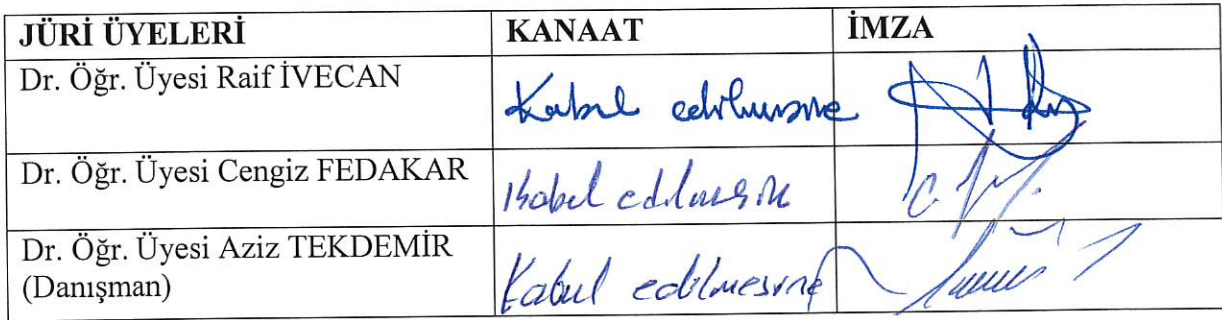 JÜRİ ÜYELERİ KANAAT İMZA
Dr. Öğr. Üyesi Raif İVECAN Kabul edilmesine
Dr. Öğr. Üyesi Cengiz FEDAKAR Kabul edilmesine
Dr. Öğr. Üyesi Aziz TEKDEMİR
(Danışman) Kabul edilmesine